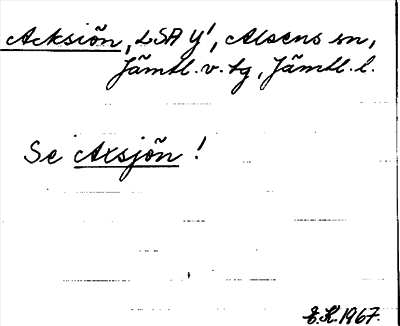 Acksiõn, LSA Y', Alsens sn,
Jämtl. v. tg, Jämtl. l.
Se Axsjõn !
E.K. 1967.